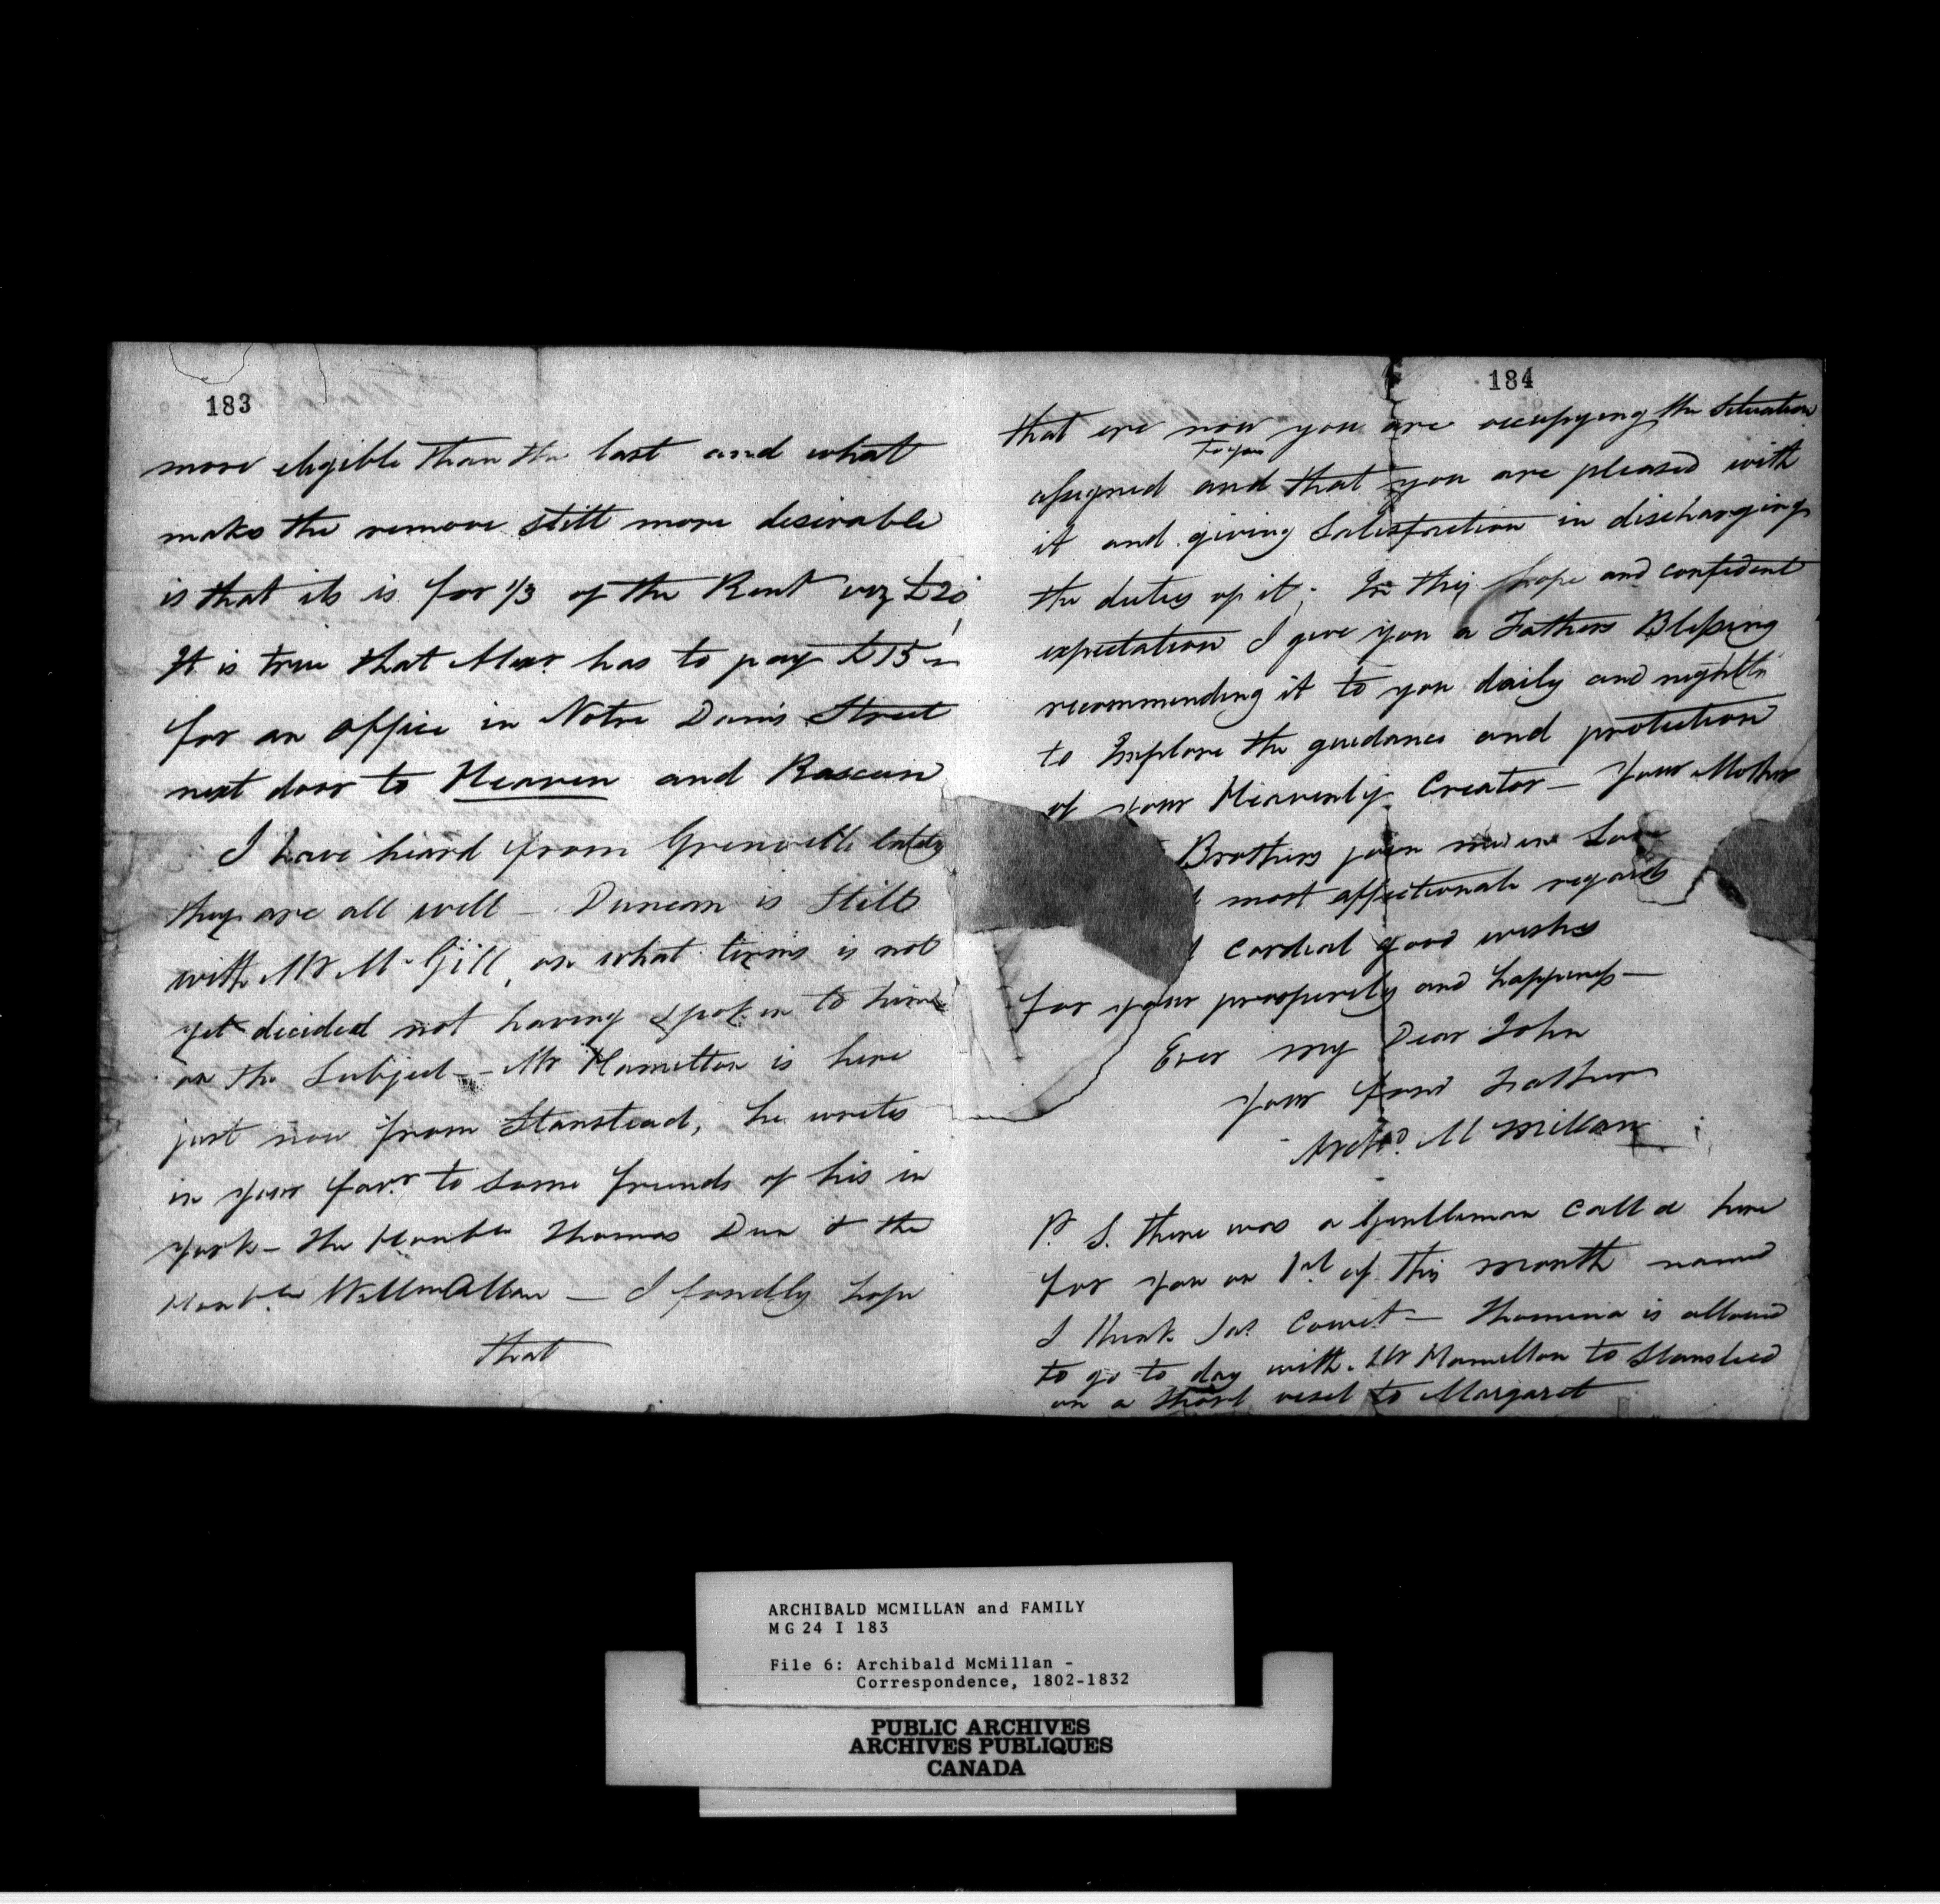 183
more eligible than the last and what
makes the remove still more desirable
is that its is for 1/3 of the Rent viz £20
It is true that Alexr has to pay £15
for an office in Notre Dame Street
next door to Heaven and
I have heard from Grenville lately
they are all well - Duncan is still
with Mr McGill, on what terms is not
yet decided not having spoken to him
on the Subject - Mr Hamilton is here
just now from Stanstead, he writes
in your favr to some friends of his in
York - The Honble Thomas & the
Honble Willm Allan - I fondly hope
that
184
that ere now you are occupying the situation
to you
assigned and that you are pleased with
it and giving Satisfaction in discharging
the duties of it; In this hope and confident
expectation I give you a Fathers Blessing
recommending it to you daily and nightly
to Implore the guidance and protection
of your Heavenly Creator - Your Mother
Brothers join me in Love
most affectionate regards
cordial good wishes
for your prosperity and happiness -
Ever my Dear John
your fond Father
Archd. McMillan
P. S. there was a Gentleman calld here
for you on 1st of this month named
I think Jas - Thomina is allowed
to go to day with Mr Hamilton to Stanstead
on a short visit to Margaret
ARCHIBALD MCMILLAN and FAMILY
MG 24 I 183
File 6: Archibald McMillan -
Correspondence, 1802-1832
PUBLIC ARCHIVES
ARCHIVES PUBLIQUES
CANADA